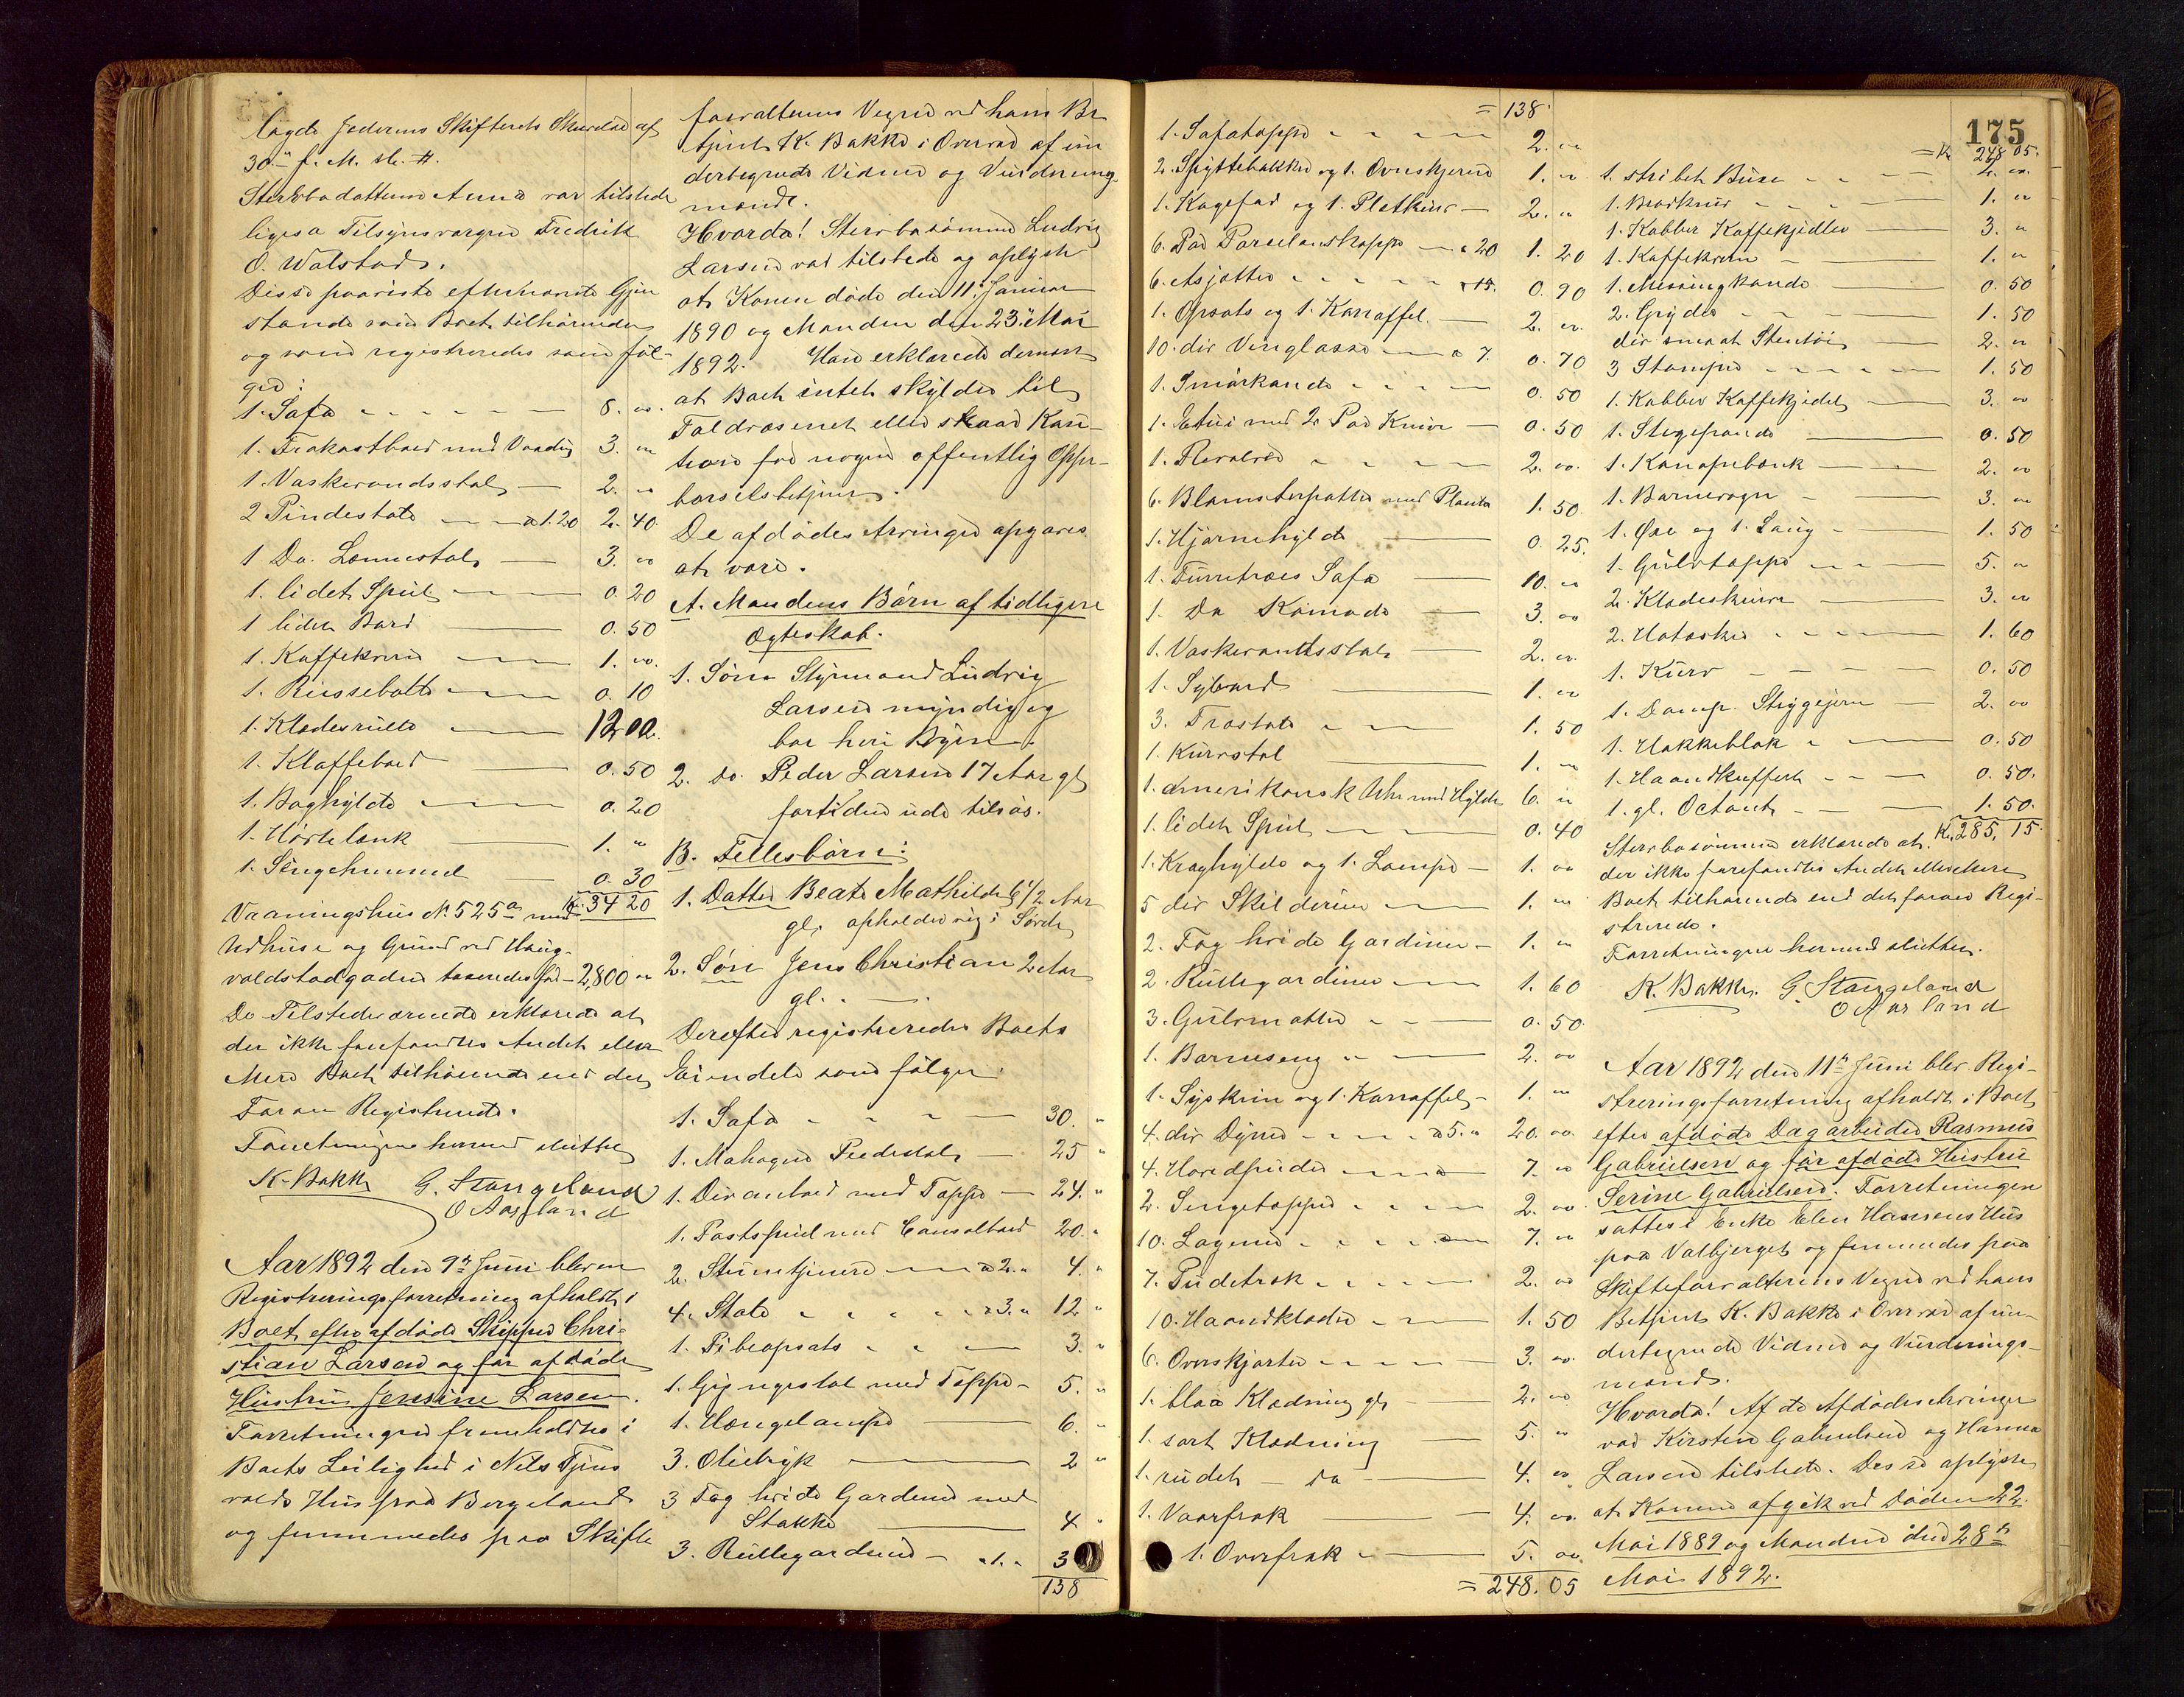 lagde Jederens Skifterets Skrivelse af
30te f. M. sl. H.
Sterbodatteren Anna var tilstede
ligesaa Tilsynsvergen Fredrik
O. Walstad.
Disse paaviste efternævnte Gjen
stande som Boet tilhørende
og som registreredes som føl-
ger:
1. Sofa 8. "
1. Frokostbord med Voxdug 3. "
1. Vaskevandsstol 2. "
2 Pindestole a 1.20 2. 40.
1 Do. Lænestol 3. "
1. lidet Speil 0. 20
1 lidet Bord 0. 50
1. Kaffekværn 1. "
1. Rissebolt 0. 10
1. Klædesrulle 12 00.
1. Klaffebord 0. 50
1. Boghylde 0. 20
1. Hørtelænk 1. "
1. Sengehimmel 0. 30
Kr. 34 20
Vaaningshus No. 525a med
Udhuse og Grund ved Haug-
valdstadgaden taxeredes for - 2,800 "
De Tilstedeværende erklærede at
der ikke forefandtes Andet eller
Mere Boet tilhørende end det
Foran Registrerede.
Forretningen hermed sluttet
K. Bakke G. Stangeland
O Aarsland
Aar 1892 den 9de Juni blev en
Registreringsforretning afholdt i
Boet efter afdøde Skipper Chri-
stian Larsen og før afdøde
Hustru Jensine Larsen.
Forretningen fremholdtes i
Boets Leilighed i Nils Tjens
volds Hus paa Bergeland
og fremmedes paa Skifte
forvalterens Vegne ved hans Be
tjent K. Bakke i Overvær af un
dertegnede Vidner og Vurderings-
mænd.
Hvorda! Sterbosønnen Ludvig
Larsen var tilstede og oplyste
at Konen døde den 11te Januar
1890 og Manden den 23de Mai
1892. Han erklærede dernæst
at Boet intet skylder til
Toldvæsenet eller staar Kau-
tion for nogen offentlig Oppe-
børselsbetjent.
De afdødes Arvinger opgaves
at være.
A. Mandens Børn af tidligere
Ægteskab.
1. Søn Styrmand Ludvig
Larsen myndig og
bor her i Byen.
2. do. Peder Larsen 17 Aar gl
fortiden ude tilsøs.
B. Fellesbørn:
1. Datter Beate Mathilde 6 1/2 Aar
gl. opholder sig i
2. Søn Jens Christian 2 Aar
gl. —
Derefter registreredes Boets
Eiendele som følger
1. Sofa 30. "
1. Mahogne Piedestal 25 "
1. Divanbord med Teppe 24. "
1. Postspeil med Consolbord 20. "
2. Steintjener a 2. " 4. "
4. Stole a 3. " 12. "
1. Pibeopsats 3. "
1. Gyngestol med Teppe 5. "
1. Hængelampe 6. "
3. Olietryk 2 "
3 Fag hvide Gardiner med
Stakke 4. "
3. Rullegardiner a 1. " 3
138
= 138
1. Sofateppe 2. "
2. Spyttebakker og 1. Ovnskjerm 1. "
1. Kagefad og 1. Pletkurv 2. "
6. Par Porcelænskopper a 20 1. 20
6. Asjetter a 15. 0. 90
1. Opsats og 1. Karaffel 2. "
10. div Vinglasse a 7. 0. 70
1. Smørkande 0. 50
1. Etui med 2 Par Knive 0. 50
1. Revolver 2. "
6. Blomsterpotter med Planter 1. 50
1. Hjørnehylde 0. 25.
1. Furutræes Sofa 10. "
1. Do Komode 3. "
1. Vaskevandsstol 2. "
1. Sybord 1. "
3. Træstole 1. 50
1. Kurvstol 1. "
1. Amerikansk Uhr med Hylde 6. "
1. lidet Speil 0. 40
1. Kraghylde og 1. Lampe 1. "
5 div Skilderier 1. "
2. Fag hvide Gardiner 1. "
2. Rullegardiner 1. 60
3. Gulvmatter 0. 50.
1. Barneseng 2. "
1. Syskrin og 1. Karaffel 1. "
4. div Dyner a 5. " 20. "
4. Hovedpuder 7. "
2. Sengetepper 2. "
10. Lagener 7. "
7. Pudetræk 2. "
10. Haandklæder 1. 50
6. Overskjorter 3. "
1. blaa Klædning gl. 2. "
1. sort Klædning 5. "
1. rudet do 4. "
1. Vaarfrak 4. "
1. Overfrak 5. "
= 248. 05
175
= Kr 248 05.
1. stribet Buxe 2. "
1. Brødkniv 1. "
1. Kobber Kaffekjedler 3. "
1. Kaffekværn 1. "
1. Messingkande 0. 50
2. Gryder 1. 50
div smaat Stentøi 2. "
3 Stamper 1. 50
1. Kobber Kaffekjedel 3. "
1. Stegepande 0. 50
1. Kanapebænk 2. "
1. Barnevogn 3. "
1. Øxe og 1. Saug 1. 50
1. Gulvteppe 5. "
2. Klædeskurve 3. "
2. Hatæsker 1. 60
1. Kurv 0. 50
1. Damp Strygejern 2. "
1. Hakkeblok 0. 50
1. Haandkuffert 0. 50.
1. gl. Octant 1. 50.
Kr. 285, 15.
Sterbosønnen erklærede at
der ikke forefandtes Andet eller Mere
Boet tilhørende end det foran Regi-
strerede.
Forretningen hermed sluttet.
K. Bakke. G. Stangeland
O Aarsland
Aar 1892 den 11te Juni blev Regi-
streringsforretning afholdt i Boet
efter afdøde Dagarbeider Rasmus
Gabrielsen og før afdøde Hustru
Serine Gabrielsen. Forretningen
sattes i Enke Elen Hansens Hus
paa Valbjerget og fremmedes paa
Skifteforvalterens Vegne ved hans
Betjent K. Bakke i Overvær af un-
dertegnede Vidner og Vurderings-
mænd.
Hvorda! Af de Afdødes Arvinger
var Kirsten Gabrielsen og Hanna
Larsen tilstede. Disse oplyste
at Konen afgik ved Døden 22.
Mai 1889 og Manden den 28de
Mai 1892.